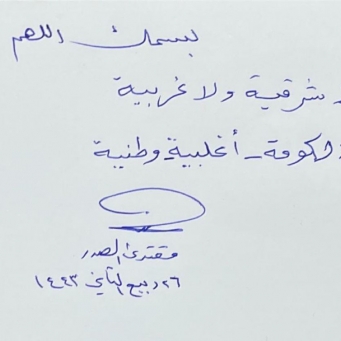 بسمك اللهم
شرقية ولا غربية
أغلبية وطنية
مقتدى الصدر
٢٦ ربيع الثاني ١٤٤٣